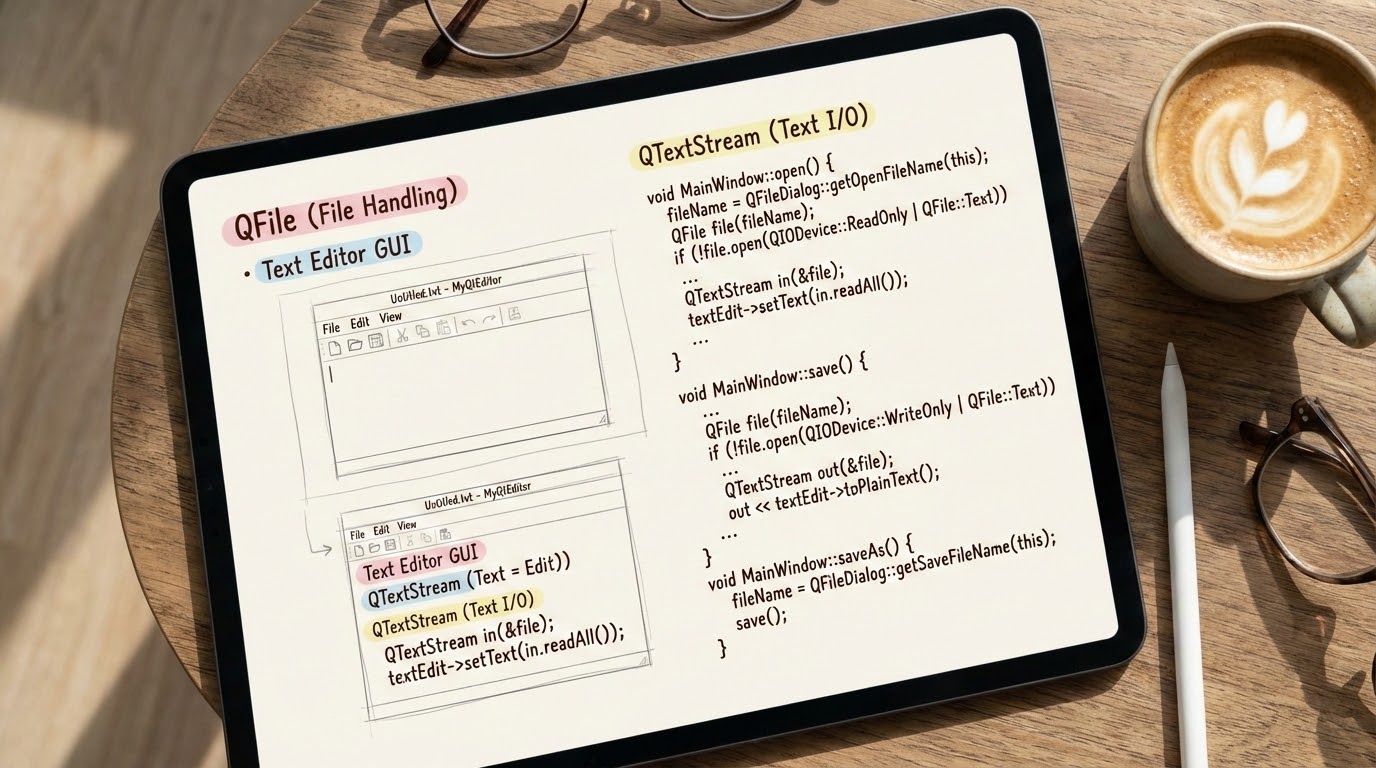 QFile (File Handling)
• Text Editor GUI
- MyQtEditor
File Edit View
File Edit View
Text Editor GUI
QTextStream (Text = Edit))
QTextStream (Text I/O)
QTextStream in(&file);
textEdit->setText(in.readAll());
QTextStream (Text I/O)
void MainWindow::open() {
fileName = QFileDialog::getOpenFileName(this);
QFile file(fileName);
if (!file.open(QIODevice::ReadOnly | QFile::Text))
...
QTextStream in(&file);
textEdit->setText(in.readAll());
...
}
void MainWindow::save() {
...
QFile file(fileName);
if (!file.open(QIODevice::WriteOnly | QFile::Text))
...
QTextStream out(&file);
out << textEdit->toPlainText();
...
}
void MainWindow::saveAs() {
fileName = QFileDialog::getSaveFileName(this);
save();
}